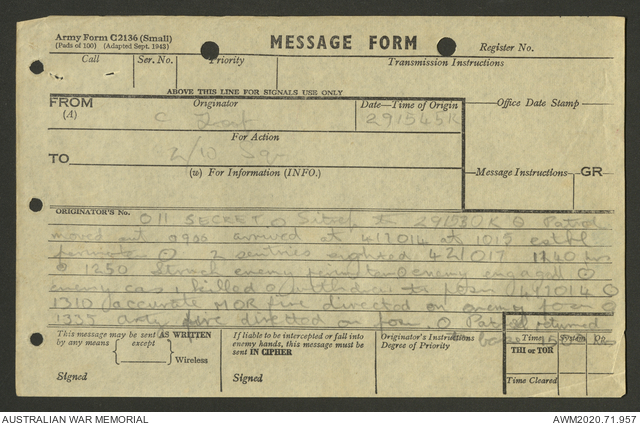 Army Form C2136 (Small)
(Pads of 100) (Adapted Sept. 1943)
MESSAGE FORM
Register No.
Call
Ser. No.
Priority
Transmission Instructions
ABOVE THIS LINE FOR SIGNALS USE ONLY
FROM
(A)
Originator
C
Date—Time of Origin
291545K
Office Date Stamp—
For Action
TO
2/10
(w) For Information (INFO.)
Message Instructions—
GR
ORIGINATOR'S No.
O11 SECRET O Sitrep to 291530K O Patrol
moved out 0900 arrived at 419014 at 1015 estbl
perimeter O 2 sentries sighted 421017 1140 hrs
O 1250 Struck enemy perimeter O enemy engaged O
enemy cas killed O withdrew to posn 419014 O
1310 accurate MOR fire directed on enemy posn O
1335 arty fire directed on posn O Patrol returned
base 1500 K
This message may be sent AS WRITTEN
by any means except
Wireless
Signed
If liable to be intercepted or fall into
enemy hands, this message must be
sent IN CIPHER
Signed
Originator's Instructions
Degree of Priority
Time
System
Op.
THI or TOR
Time Cleared
AUSTRALIAN WAR MEMORIAL
AWM2020.71.957